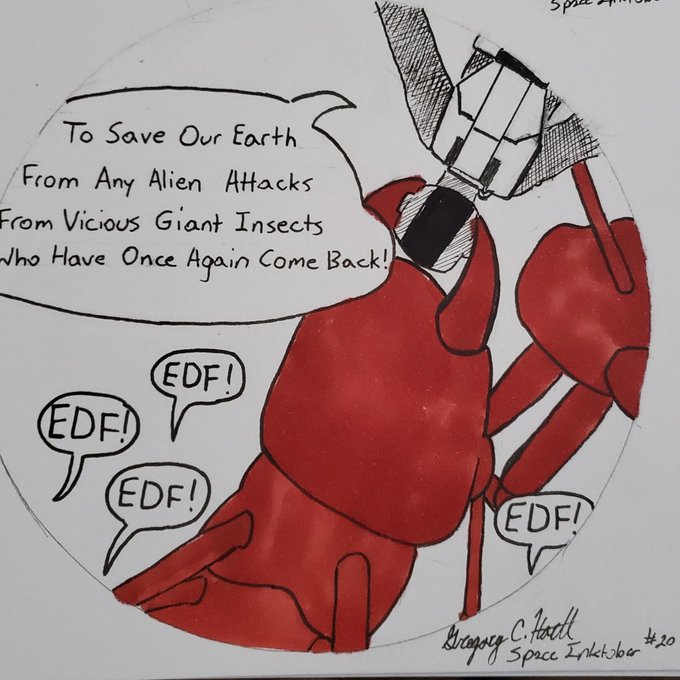 Space Inktober
To Save Our Earth
From Any Alien Attacks
From Vicious Giant Insects
Who Have Once Again Come Back!
EDF!
EDF!
EDF!
EDF!
Gregory C.
Space Inktober #20